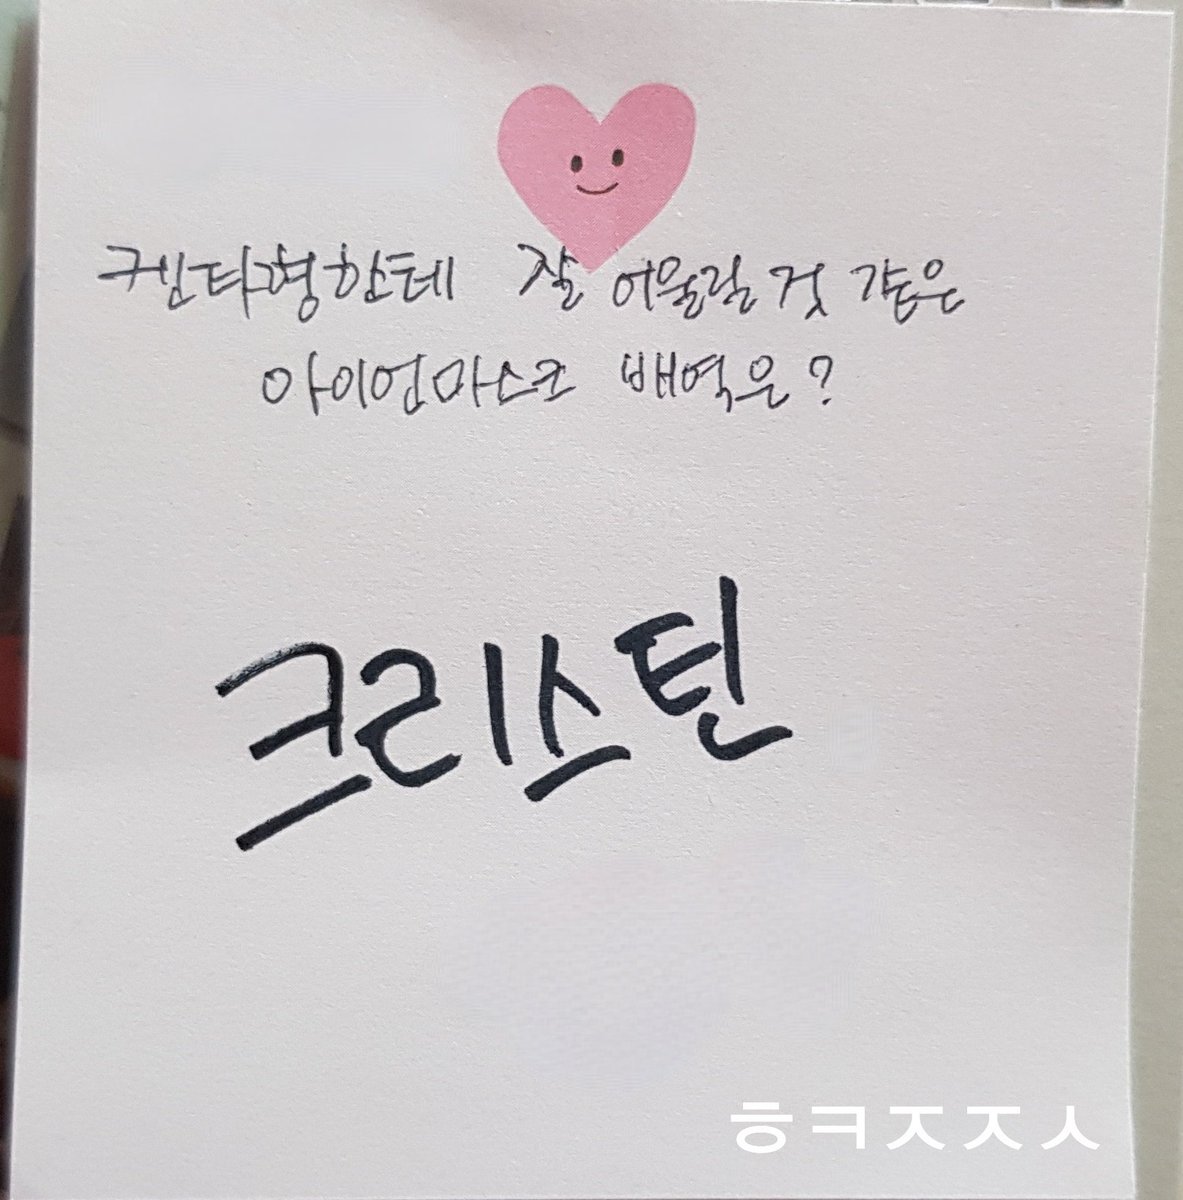 켄타형한테 잘 어울릴 것 같은
아이언마스크 배역은?
크리스틴
ㅎㅋㅈㅈㅅ